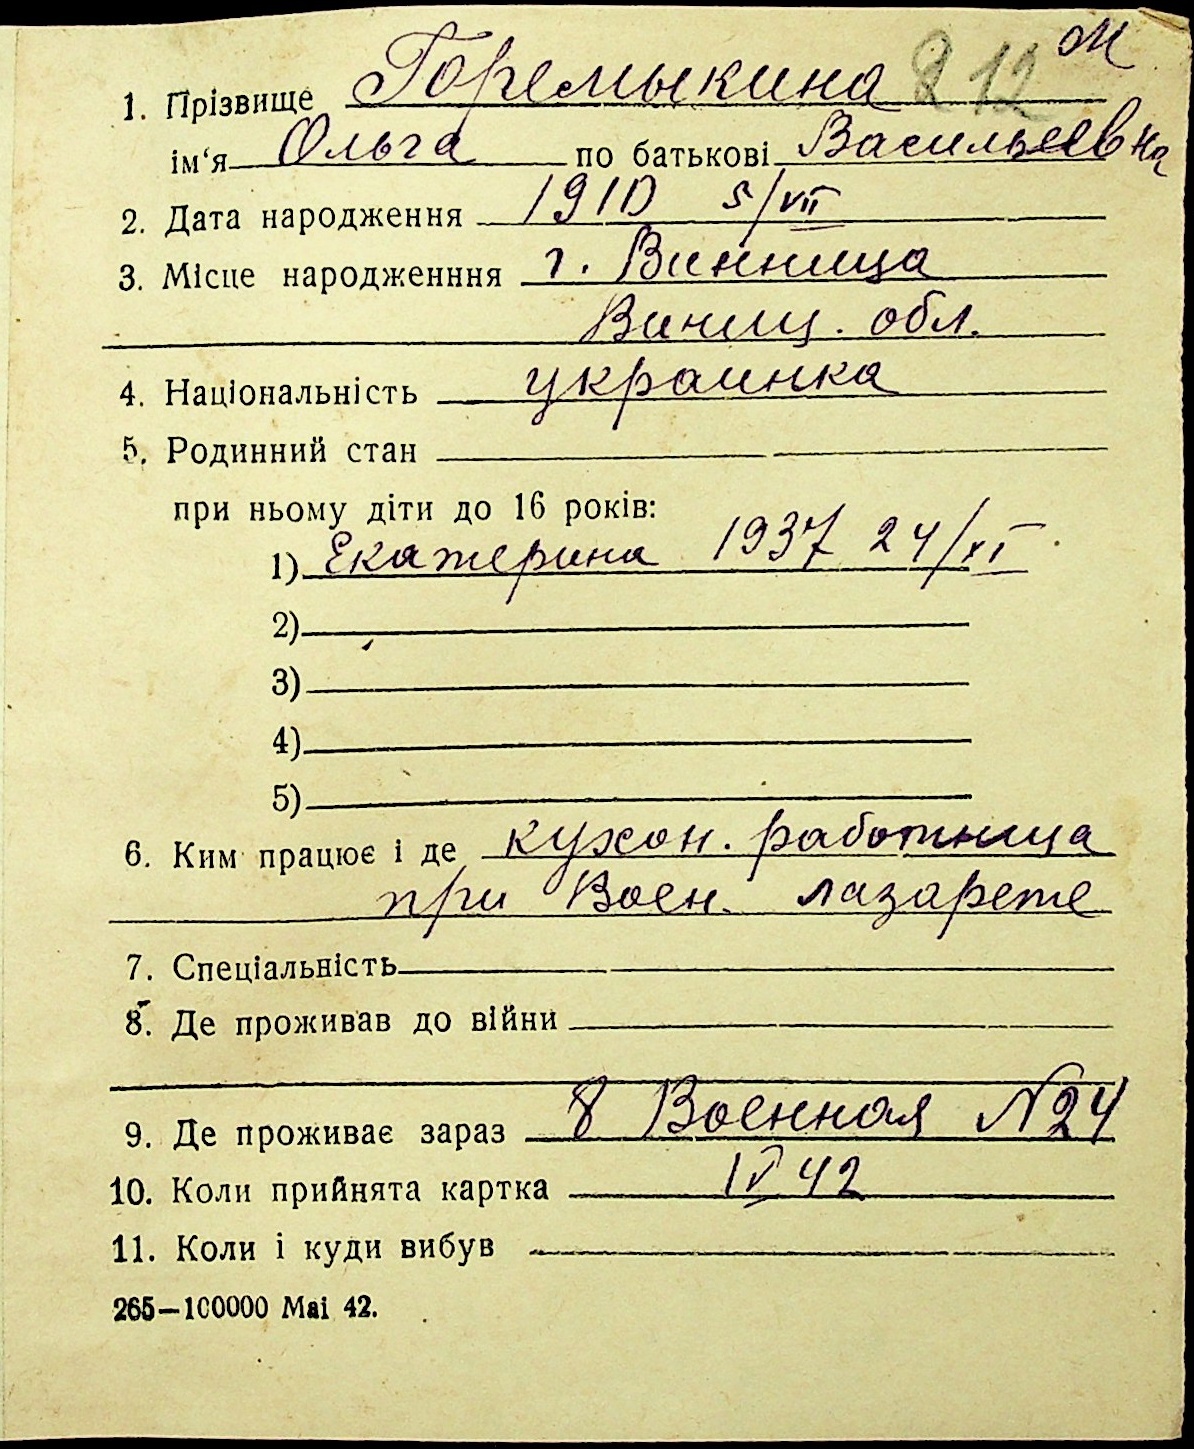 1. Прізвище Горемыкина 212
ім‘я Ольга по батькові Васильевна
2. Дата народження 1910 5/VII
3. Місце народженння г. Винница
Виниц. обл.
4. Національність украинка
5. Родинний стан
при ньому діти до 16 років:
1) Екатерина 1937 24/XI
2)
3)
4)
5)
6. Ким працює і де кухон. работница
при Воен. лазарете
7. Спеціальність
8. Де проживав до війни
9. Де проживає зараз 8 Военная N24
10. Коли прийнята картка IV 42
11. Коли і куди вибув
265—100000 Mai 42.